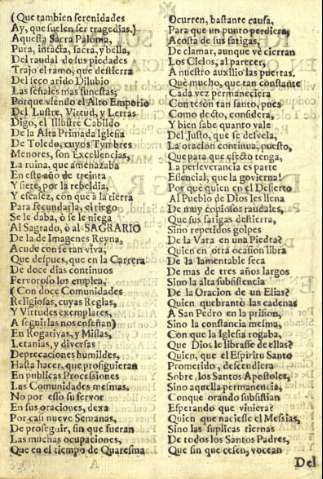 (Que tambien serenidades
Ay, que suelen ser tragedias.)
Aquesta Sacra Paloma,
Pura, intacta, sacra, y bella,
Del raudal de sus piedades
Trajo el ramo, que destierra
Del seco arido Dilubio
Las señales mas funestas;
Porque viendo el Alto Emporio
Del Lustre, Virtud, y Letras
Digo, el Illustre Cabildo
De la Alta Primada Iglesia
De Toledo, cuyos Tymbres
Menores, son Excelencias,
La ruina, que amenazaba
En este año de treinta
Y siete, por la rebeldia,
Y escasez, con que à la tierra
Para fecundarla, el riego,
Se le daba, ò se le niega
Al Sagrado, ò al SAGRARIO
De la de Imagenes Reyna,
Acude con fe tan viva,
Que despues, que en la Carrera
De doce dias continuos
Fervoroso los emplea,
(Con doce Comunidades
Religiosas, cuyas Reglas,
Y Virtudes exemplares,
A seguirlas nos enseñan)
En Rogativas, y Missas,
Letanias, y diversas
Deprecaciones humildes,
Hasta hacer, que prosiguieran
En publicas Processiones
Las Comunidades mesmas,
No por esso su fervor
En sus oraciones, dexa
Por casi nueve Semanas,
De proseguir, sin que fueran
Las muchas ocupaciones,
Que en el tiempo de Quaresma
Ocurren, bastante causa,
Para que un punto perdiera,
A costa de sus fatigas,
De clamar, aunque vè cierran
Los Cielos, al parecer,
A nuestro auxilio las puertas.
Què mucho, que tan constante
Cada vez permaneciera
Con teson tan santo, pues
Como docto, considera,
Y bien sabe quanto vale
Del Justo, que se desvela,
La oracion continua, puesto,
Que para que efecto tenga,
La perseverancia es parte
Essencial, que la govierna?
Por que quien en el Desierto
Al Pueblo de Dios les llena
De muy copiosos raudales,
Que sus fatigas destierra,
Sino repetidos golpes
De la Vara en una Piedra?
Quien en otra ocasion libra
De la lamentable seca
De mas de tres años largos
Sino la alta subsistencia
De la Oracion de un Elias?
Quien quebrantò las cadenas
A San Pedro en la prision,
Sino la constancia mesma,
Con que la Iglesia rogaba,
Que Dios le librasse de ellas?
Quien, que el Espiritu Santo
Prometido, descendiera
Sobre los Santos Apostoles,
Sino aquella permanencia,
Conque orando subsistian
Esperando que viniera?
Quien que naciesse el Messias,
Sino las suplicas tiernas
De todos los Santos Padres,
Que sin que cesen, vocean
Del